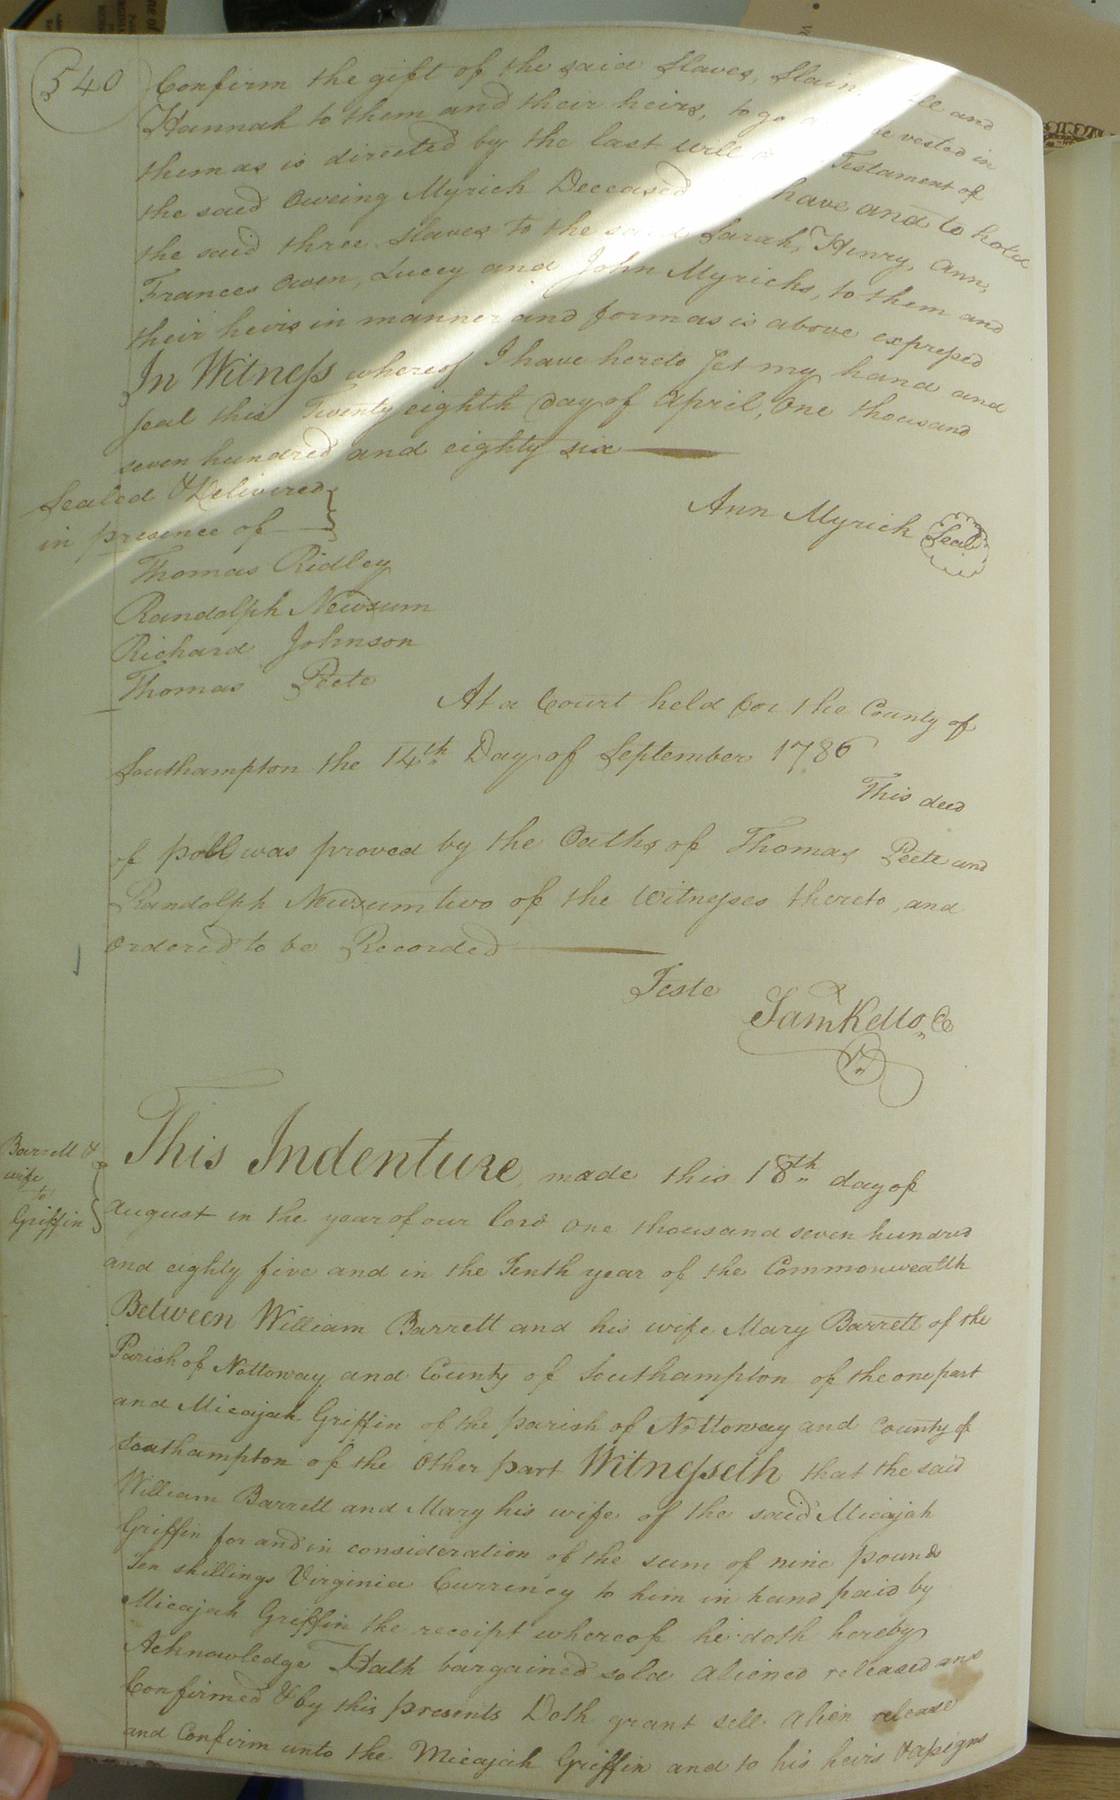 540
Confirm the gift of the said Slaves, and
Hannah to them and their heirs, to go vested in
them as is directed by the last will Testament of
the said Oweing Myrick Deceased have and to hold
the said three slaves to the said Sarah, Henry, Ann,
Frances Owen, Lucey and John Myricks, to them and
their heirs in manner and form as is above expressed
In Witness whereof I have hereto Set my hand and
seal this Twenty eighth Day of April, One thousand
seven hundred and eighty six
Sealed & Delivered
in presence of
Ann Myrick Seal
Thomas Ridley
Randolph Newsum
Richard Johnson
Thomas Peete
At a Court held for the County of
Southampton the 14th Day of September 1786
This deed
of poll was proved by the Oaths of Thomas Peete and
Randolph Newsum two of the Witnesses thereto, and
Ordered to be Recorded
Teste
Sam Kello
Barrett &
wife
to
Griffin
This Indenture made this 18th day of
August in the year of our lord one thousand seven hundred
and eighty five and in the Tenth year of the Commonwealth
Between William Barrett and his wife Mary Barrett of the
Parish of Nottoway and County of Southampton of the one part
and Micajah Griffin of the parish of Nottoway and County of
Southampton of the Other part Witnesseth that the said
William Barrett and Mary his wife of the said Micajah
Griffin for and in consideration of the sum of nine pounds
Ten shillings Virginia Currency to him in hand paid by
Micajah Griffin the receipt whereof he doth hereby
Acknowledge Hath bargained sold aliened released and
Confirmed & by this presents Doth grant sell alien release
and Confirm unto the Micajah Griffin and to his heirs & assigns